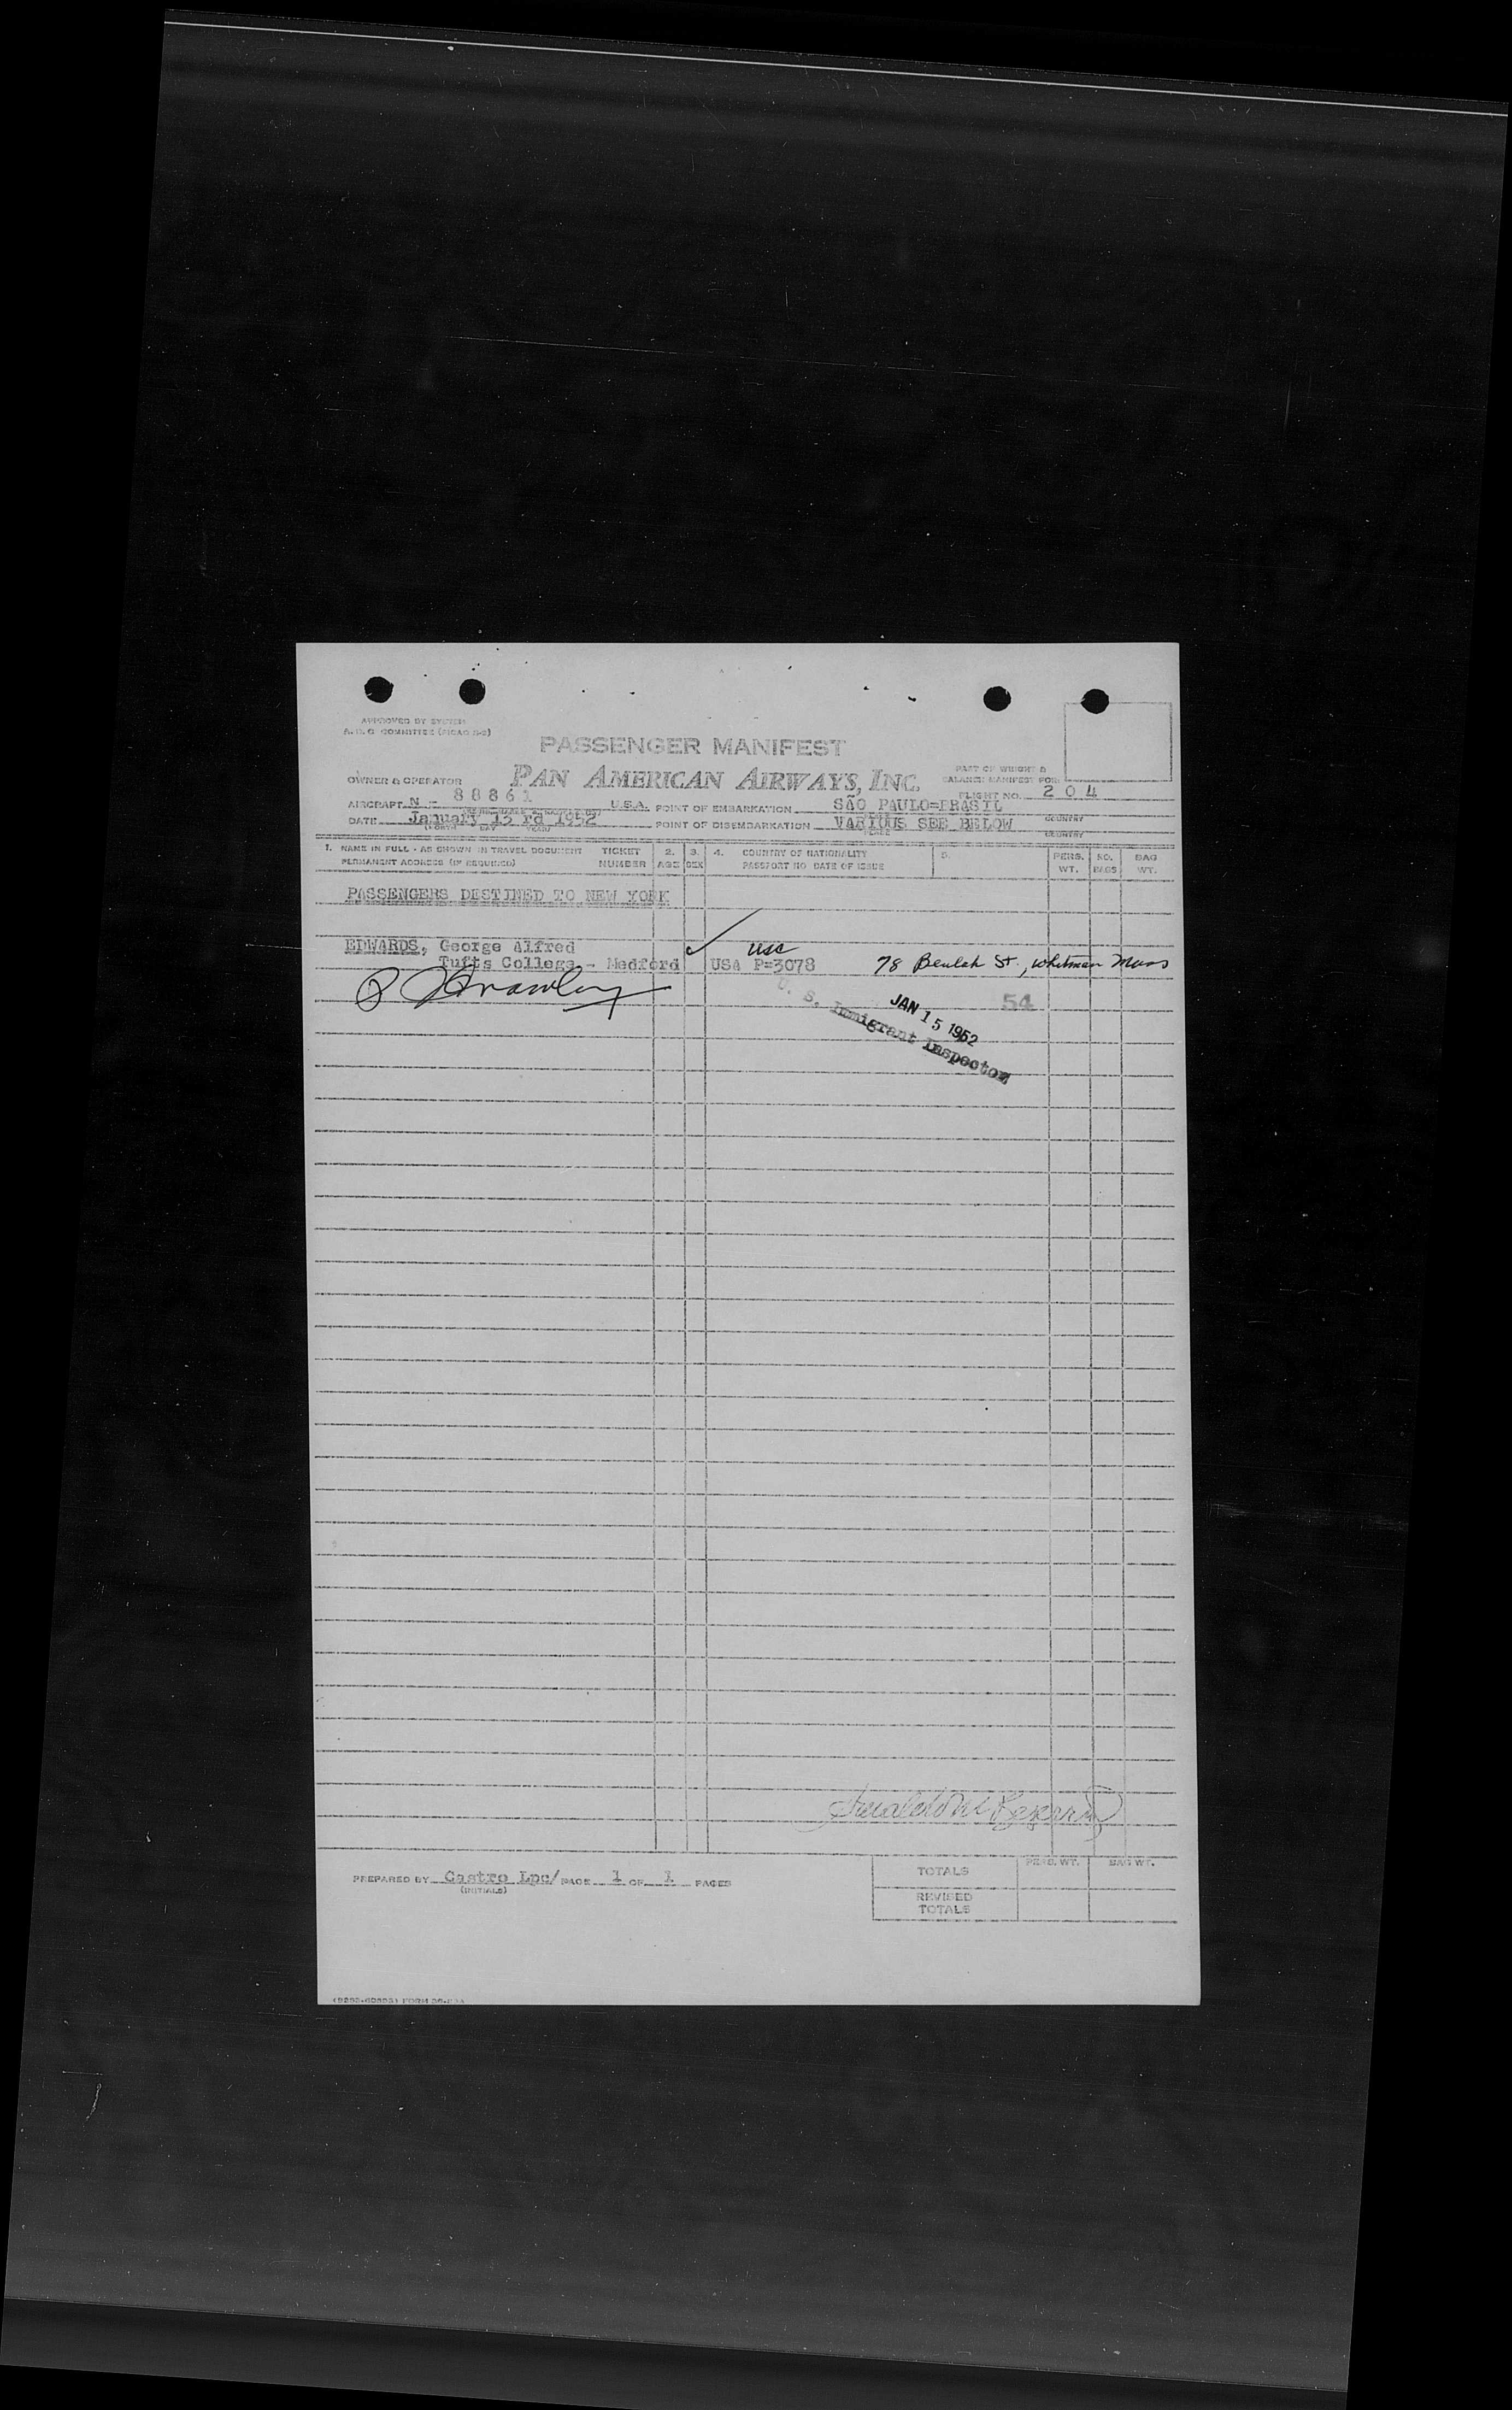 APPROVED BY SYSTEM
A. B. C COMMITTEE (PICAO S-2)
PASSENGER MANIFEST
OWNER & OPERATOR PAN AMERICAN AIRWAYS, INC.
PART OF WEIGHT &
BALANCE MANIFEST FOR:
FLIGHT NO. 2 0 4
AIRCRAFT N - 8 8 8 6 1 U.S.A. POINT OF EMBARKATION SÃO PAULO=BRASIL
COUNTRY
DATE January 13 rd 1952 POINT OF DISEMBARKATION VARIOUS SEE BELOW
(MONTH DAY YEAR) PLACE COUNTRY
1. NAME IN FULL - AS SHOWN IN TRAVEL DOCUMENT TICKET 2. 3. 4. COUNTRY OF NATIONALITY 5. PERS. NO. BAG
PERMANENT ADDRESS (IF REQUIRED) NUMBER AGE SEX PASSPORT NO DATE OF ISSUE WT. BAGS WT.
PASSENGERS DESTINED TO NEW YORK
EDWARDS, George Alfred usc
Tufts College - Medford USA P=3078 78 Beulah St, Whitman Mass
54
JAN 15 1952
U. S. Immigrant Inspector
PREPARED BY Castro Lpc/ PAGE 1 OF 1 PAGES
(INITIALS)
PERS. WT. BAG WT.
TOTALS
REVISED
TOTALS